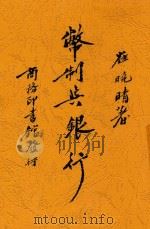 崔曉岑著
幣制與銀行
商務印書館發行